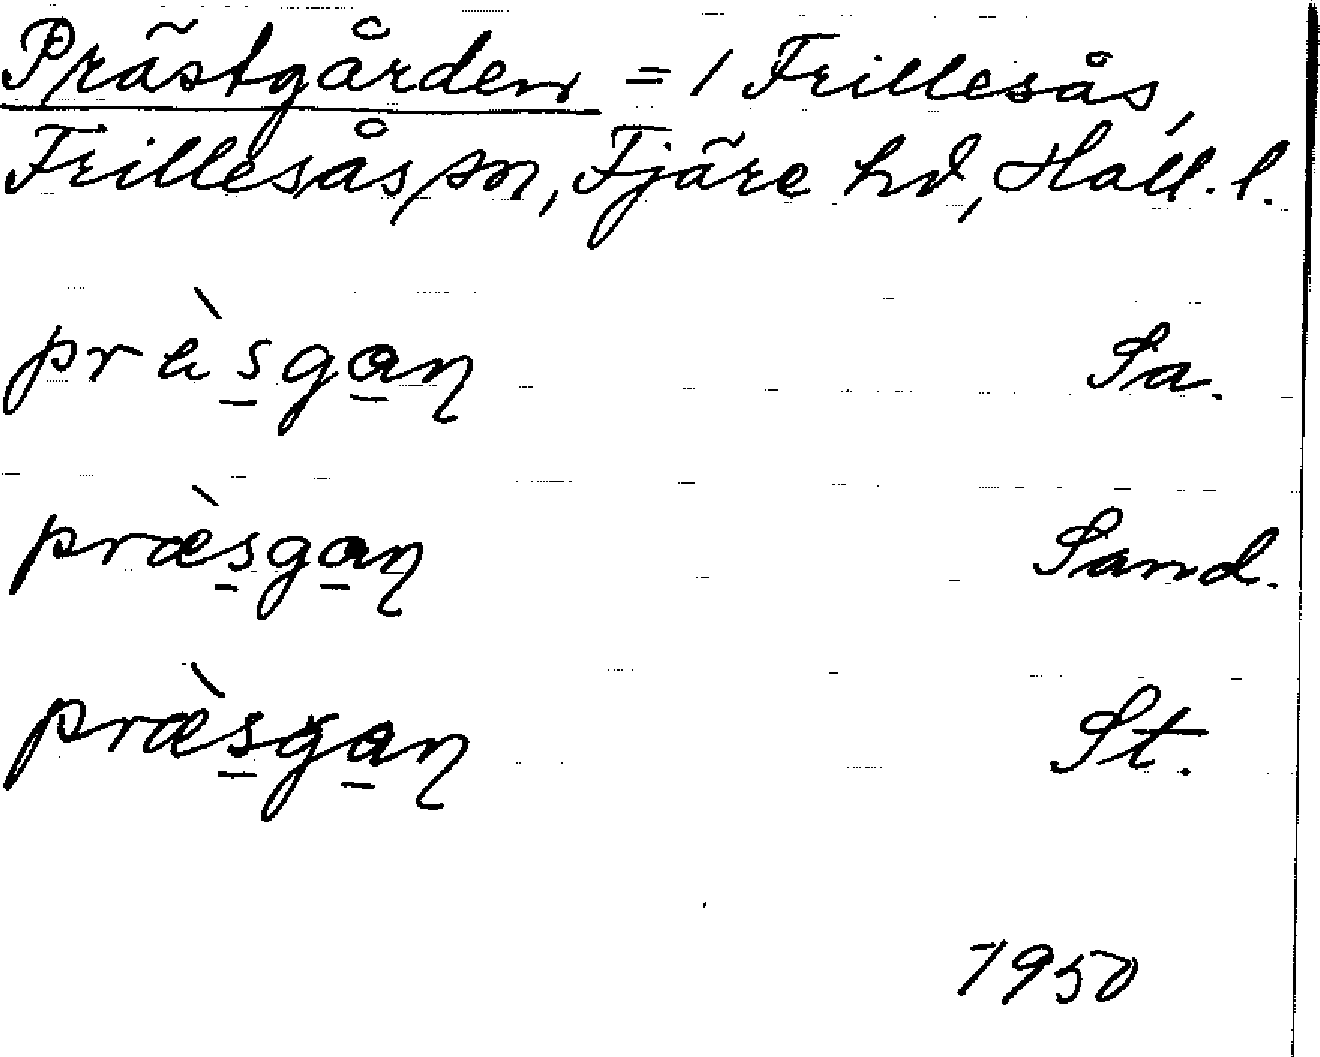 Prästgården = 1 Frillesås,
Frillesås sn, Fjäre hd, Hall. l.
præ̀s̲ga̲ɳ Sa.
præ̀s̲ga̲ɳ Sand.
præ̀s̲ga̲ɳ St.
1950